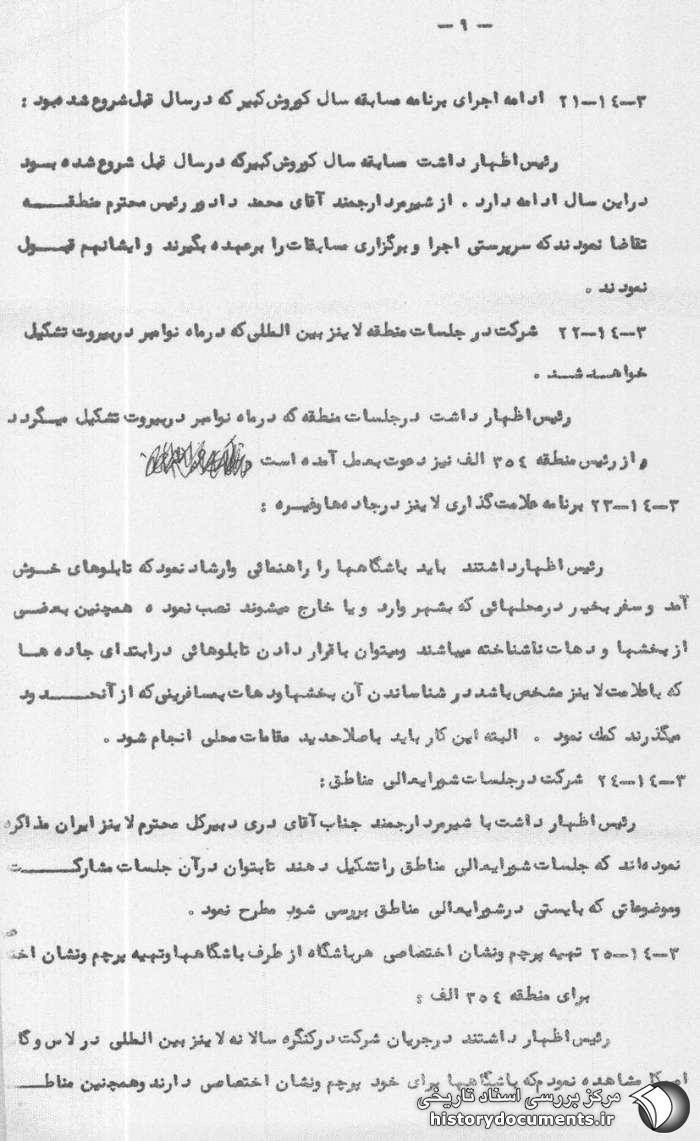 — ۹ —
۳-۱٤-۲۱ ادامه اجرای برنامه مسابقه سال کوروش کبیر که در سال قبل شروع شده بود :
رئیس اظهار داشت مسابقه سال کوروش کبیر که در سال قبل شروع شده بود
در این سال ادامه دارد . از شیرمرد ارجمند آقای محمد دادور رئیس محترم منطقه
تقاضا نمودند که سرپرستی اجرا و برگزاری مسابقات را برعهده بگیرند و ایشانهم قبول
نمودند .
۳-۱٤-۲۲ شرکت در جلسات منطقه لاینز بین المللی که در ماه نوامبر در بیروت تشکیل
خواهد شد .
رئیس اظهار داشت در جلسات منطقه که در ماه نوامبر در بیروت تشکیل میگردد
و از رئیس منطقه ۳٥٤ الف نیز دعوت بعمل آمده است
۳-۱٤-۲۳ برنامه علامت گذاری لاینز در جاده ها وغیره :
رئیس اظهار داشتند باید باشگاهها را راهنمائی وارشاد نمود که تابلوهای خوش
آمد و سفر بخیر در محلهائی که بشهر وارد و یا خارج میشوند نصب نموده همچنین بعضی
از بخشها و دهات ناشناخته میباشند ومیتوان باقرار دادن تابلوهائی در ابتدای جاده ها
که باعلامت لاینز مشخص باشد در شناساندن آن بخشها ودهات بمسافرینی که از آنحدود
میگذرند کمک نمود . البته این کار باید باصلاحدید مقامات محلی انجام شود .
۳-۱٤-۲٤ شرکت در جلسات شورایعالی مناطق :
رئیس اظهار داشت با شیرمرد ارجمند جناب آقای دری دبیرکل محترم لاینز ایران مذاکره
نموده اند که جلسات شورایعالی مناطق را تشکیل دهند تابتوان در آن جلسات مشارکت
وموضوعاتی که بایستی در شورایعالی مناطق بررسی شود مطرح نمود .
۳-۱٤-۲٥ تهیه پرچم ونشان اختصاصی هر باشگاه از طرف باشگاهها وتهیه پرچم ونشان
برای منطقه ۳٥٤ الف :
رئیس اظهار داشتند در جریان شرکت در کنگره سالانه لاینز بین المللی در لاس وگا
امریکا مشاهده نمودم که باشگاهها برای خود پرچم ونشان اختصاصی دارند وهمچنین
مرکز بررسی اسناد تاریخی
historydocuments.ir